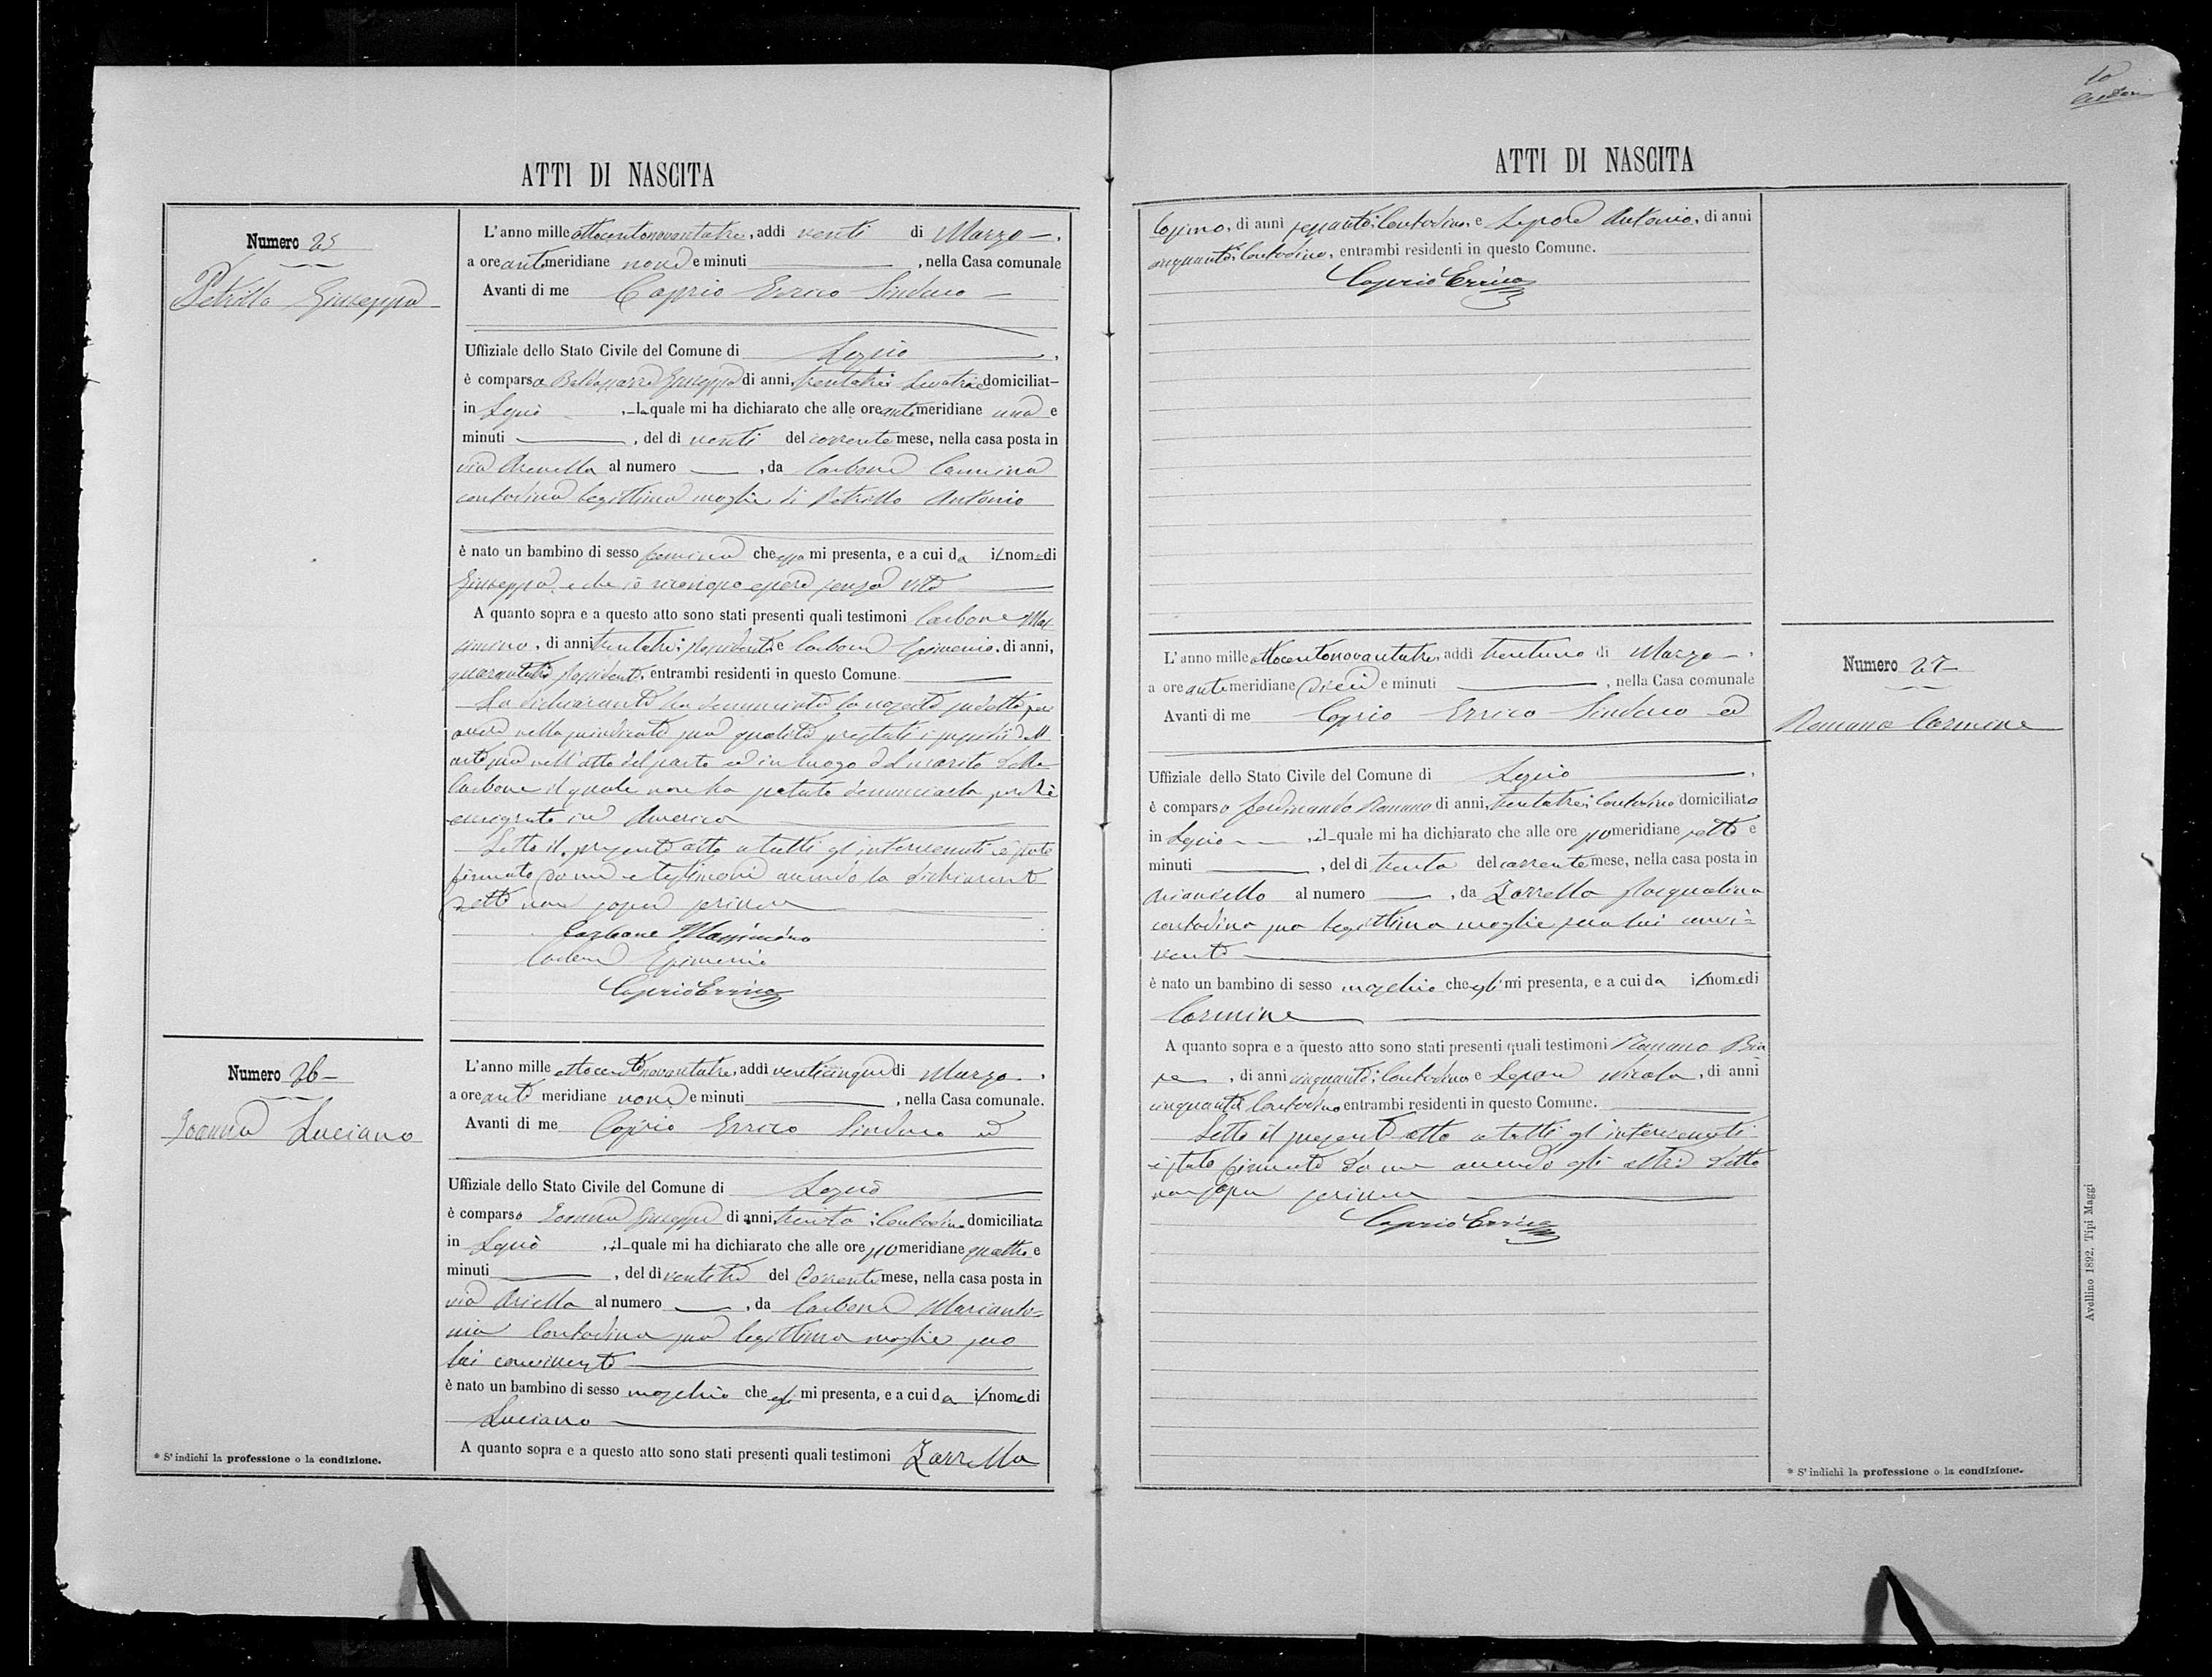 ATTI DI NASCITA
Numero 25
Petrillo Giuseppa
L'anno mille ottocentonovantatre, addì venti di Marzo
a ore antimeridiane nove e minuti , nella Casa comunale
Avanti di me Caprio Errico Sindaco
Uffiziale dello Stato Civile del Comune di
è comparsa Baldassarre Giuseppa di anni trentatre Levatrice domiciliat
in , la quale mi ha dichiarato che alle ore antimeridiane una e
minuti , del dì venti del corrente mese, nella casa posta in
via al numero , da Carbone Carmina
contadina legittima moglie di Petrillo Antonio
è nato un bambino di sesso femina che essa mi presenta, e a cui da il nome di
Giuseppa, e che io riconosco essere senza vita
A quanto sopra e a questo atto sono stati presenti quali testimoni Carbone Mas
simino, di anni trentatre, possidente e Carbone Epimenio, di anni,
possidente, entrambi residenti in questo Comune.
La dichiarante ha denunciato la nascita sudetta per
avere nella sua qualità prestati i
nell'atto del parto ed in luogo del marito della
Carbone il quale non ha potuto denunciarla perchè
emigrato in America
Letto il presente atto a tutti gl'intervenuti è stato
firmato da me e testimoni avendo la dichiarante
detto non saper scrivere
Carbone Massimino
Carbone Epimenio
Caprio Errico
Numero 26
Ioanna Luciano
L'anno mille ottocentonovantatre, addì venticinque di Marzo
a ore anti meridiane nove e minuti , nella Casa comunale.
Avanti di me Caprio Errico Sindaco ed
Uffiziale dello Stato Civile del Comune di
è comparso Ioanna Giuseppe di anni trenta; Contadino domiciliato
in , il quale mi ha dichiarato che alle ore pomeridiane quattro e
minuti , del dì ventitre del corrente mese, nella casa posta in
via Ariella al numero , da Carbone Marianto-
nia Contadina sua legittima moglie seco
lui convivente
è nato un bambino di sesso maschio che egli mi presenta, e a cui da il nome di
Luciano
A quanto sopra e a questo atto sono stati presenti quali testimoni Zarrella
* S'indichi la professione o la condizione.
10
ATTI DI NASCITA
Cosimo, di anni sessanta; Contadino, e Lepore Antonio, di anni
cinquanta; Contadino, entrambi residenti in questo Comune.
Caprio Errico
Numero 27
Romano Carmine
L'anno mille ottocentonovantatre, addì trentuno di Marzo
a ore antimeridiane dieci e minuti , nella Casa comunale
Avanti di me Caprio Errico Sindaco ed
Uffiziale dello Stato Civile del Comune di
è comparso Ferdinando Romano di anni trentatre; Contadino domiciliato
in , il quale mi ha dichiarato che alle ore pomeridiane sette e
minuti , del dì trenta del corrente mese, nella casa posta in
al numero , da Zarrella Pasqualina
contadina sua legittima moglie seco lui convi-
vente
è nato un bambino di sesso maschio che egli mi presenta, e a cui da il nome di
Carmine
A quanto sopra e a questo atto sono stati presenti quali testimoni Romano Bia
se, di anni cinquanta; Contadino e Lepore Nicola, di anni
cinquanta Contadino entrambi residenti in questo Comune.
Letto il presente atto a tutti gl'intervenuti
è stato firmato da me avendo gli altri detto
non saper scrivere
Caprio Errico
* S'indichi la professione o la condizione.
Avellino 1892. Tipi Maggi